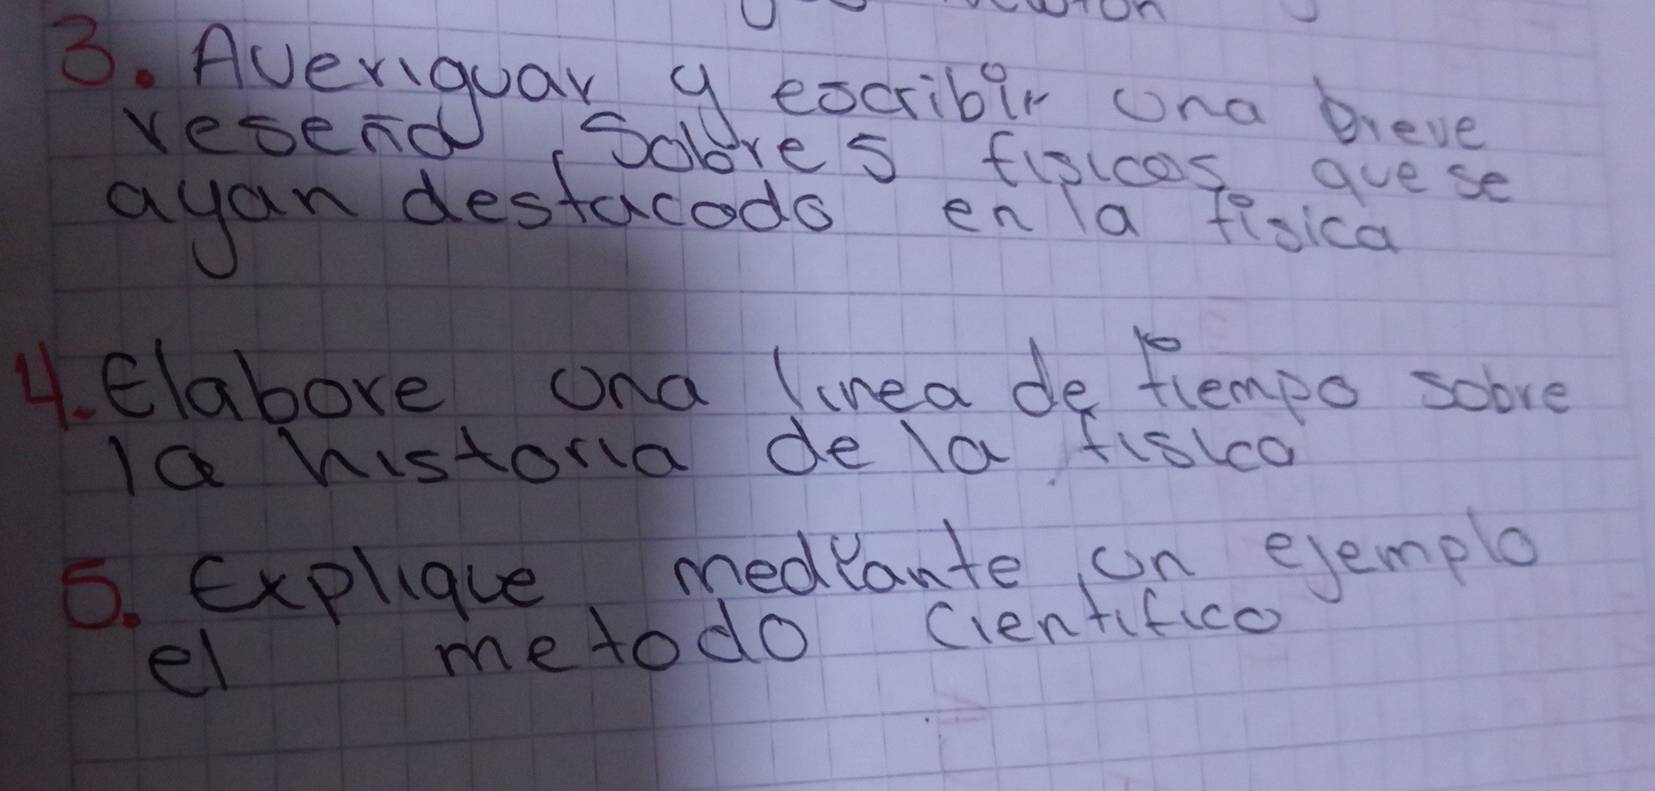 3. Averiguar y escribir una breve
reseña, Sobre 5 fisicos que se
ayan destacado en la fisica
4. Elabore una linea de tiempo sobre
la historia de la fisica
5. Explique mediante un ejemplo
el metodo cientifico